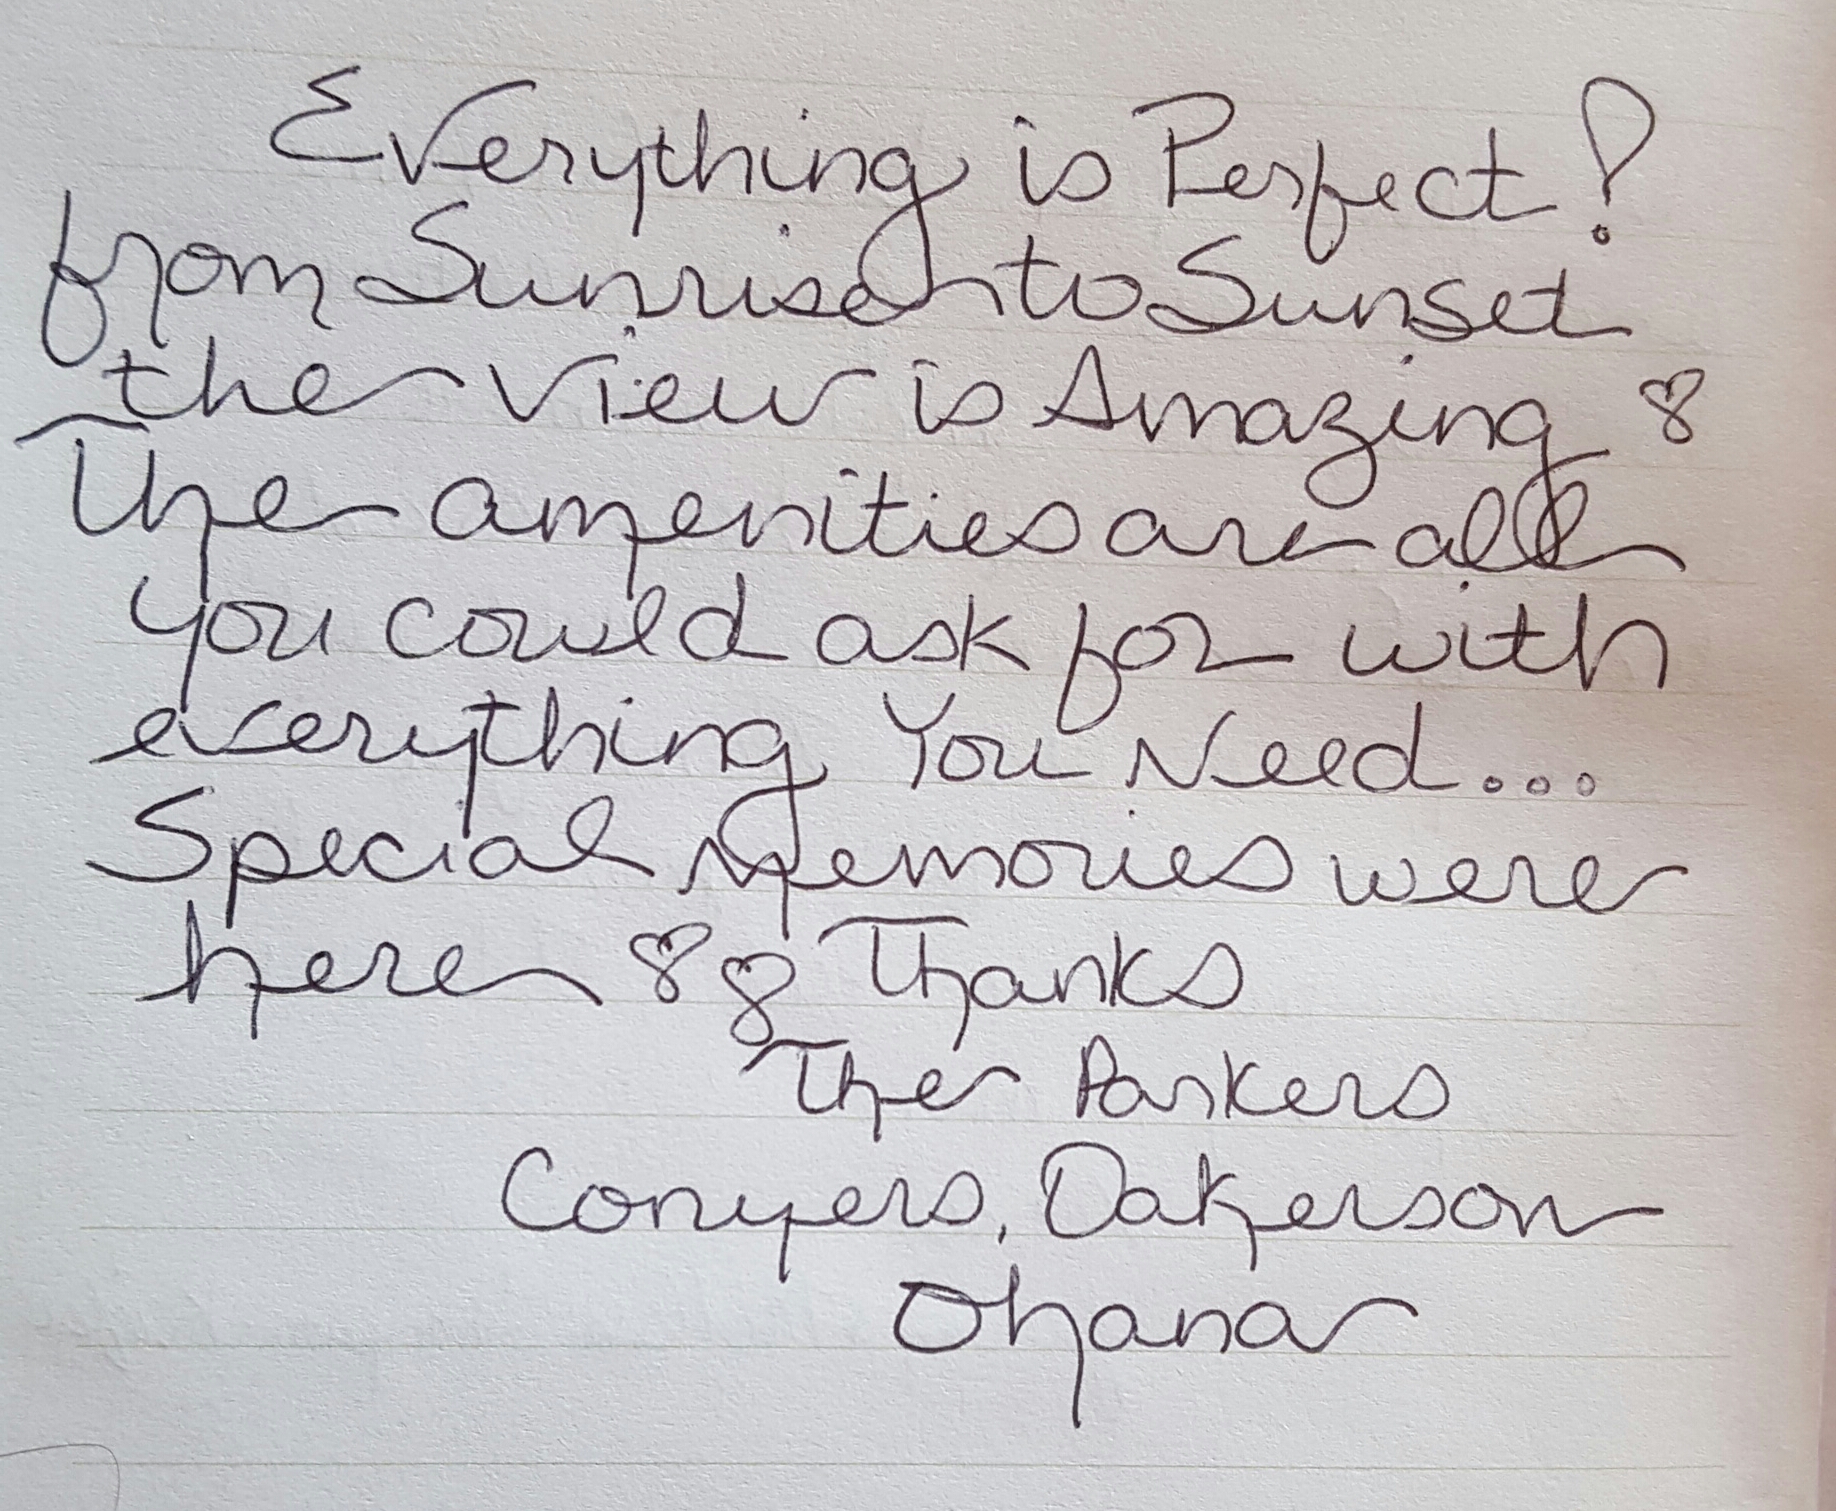 Everything is Perfect!
from Sunrise to Sunset
the View is Amazing ♡
The amenities are all
you could ask for with
everything You Need...
Special Memories were
here ♡♡ Thanks
The Parkers
Conyers, Dakerson
Ohana